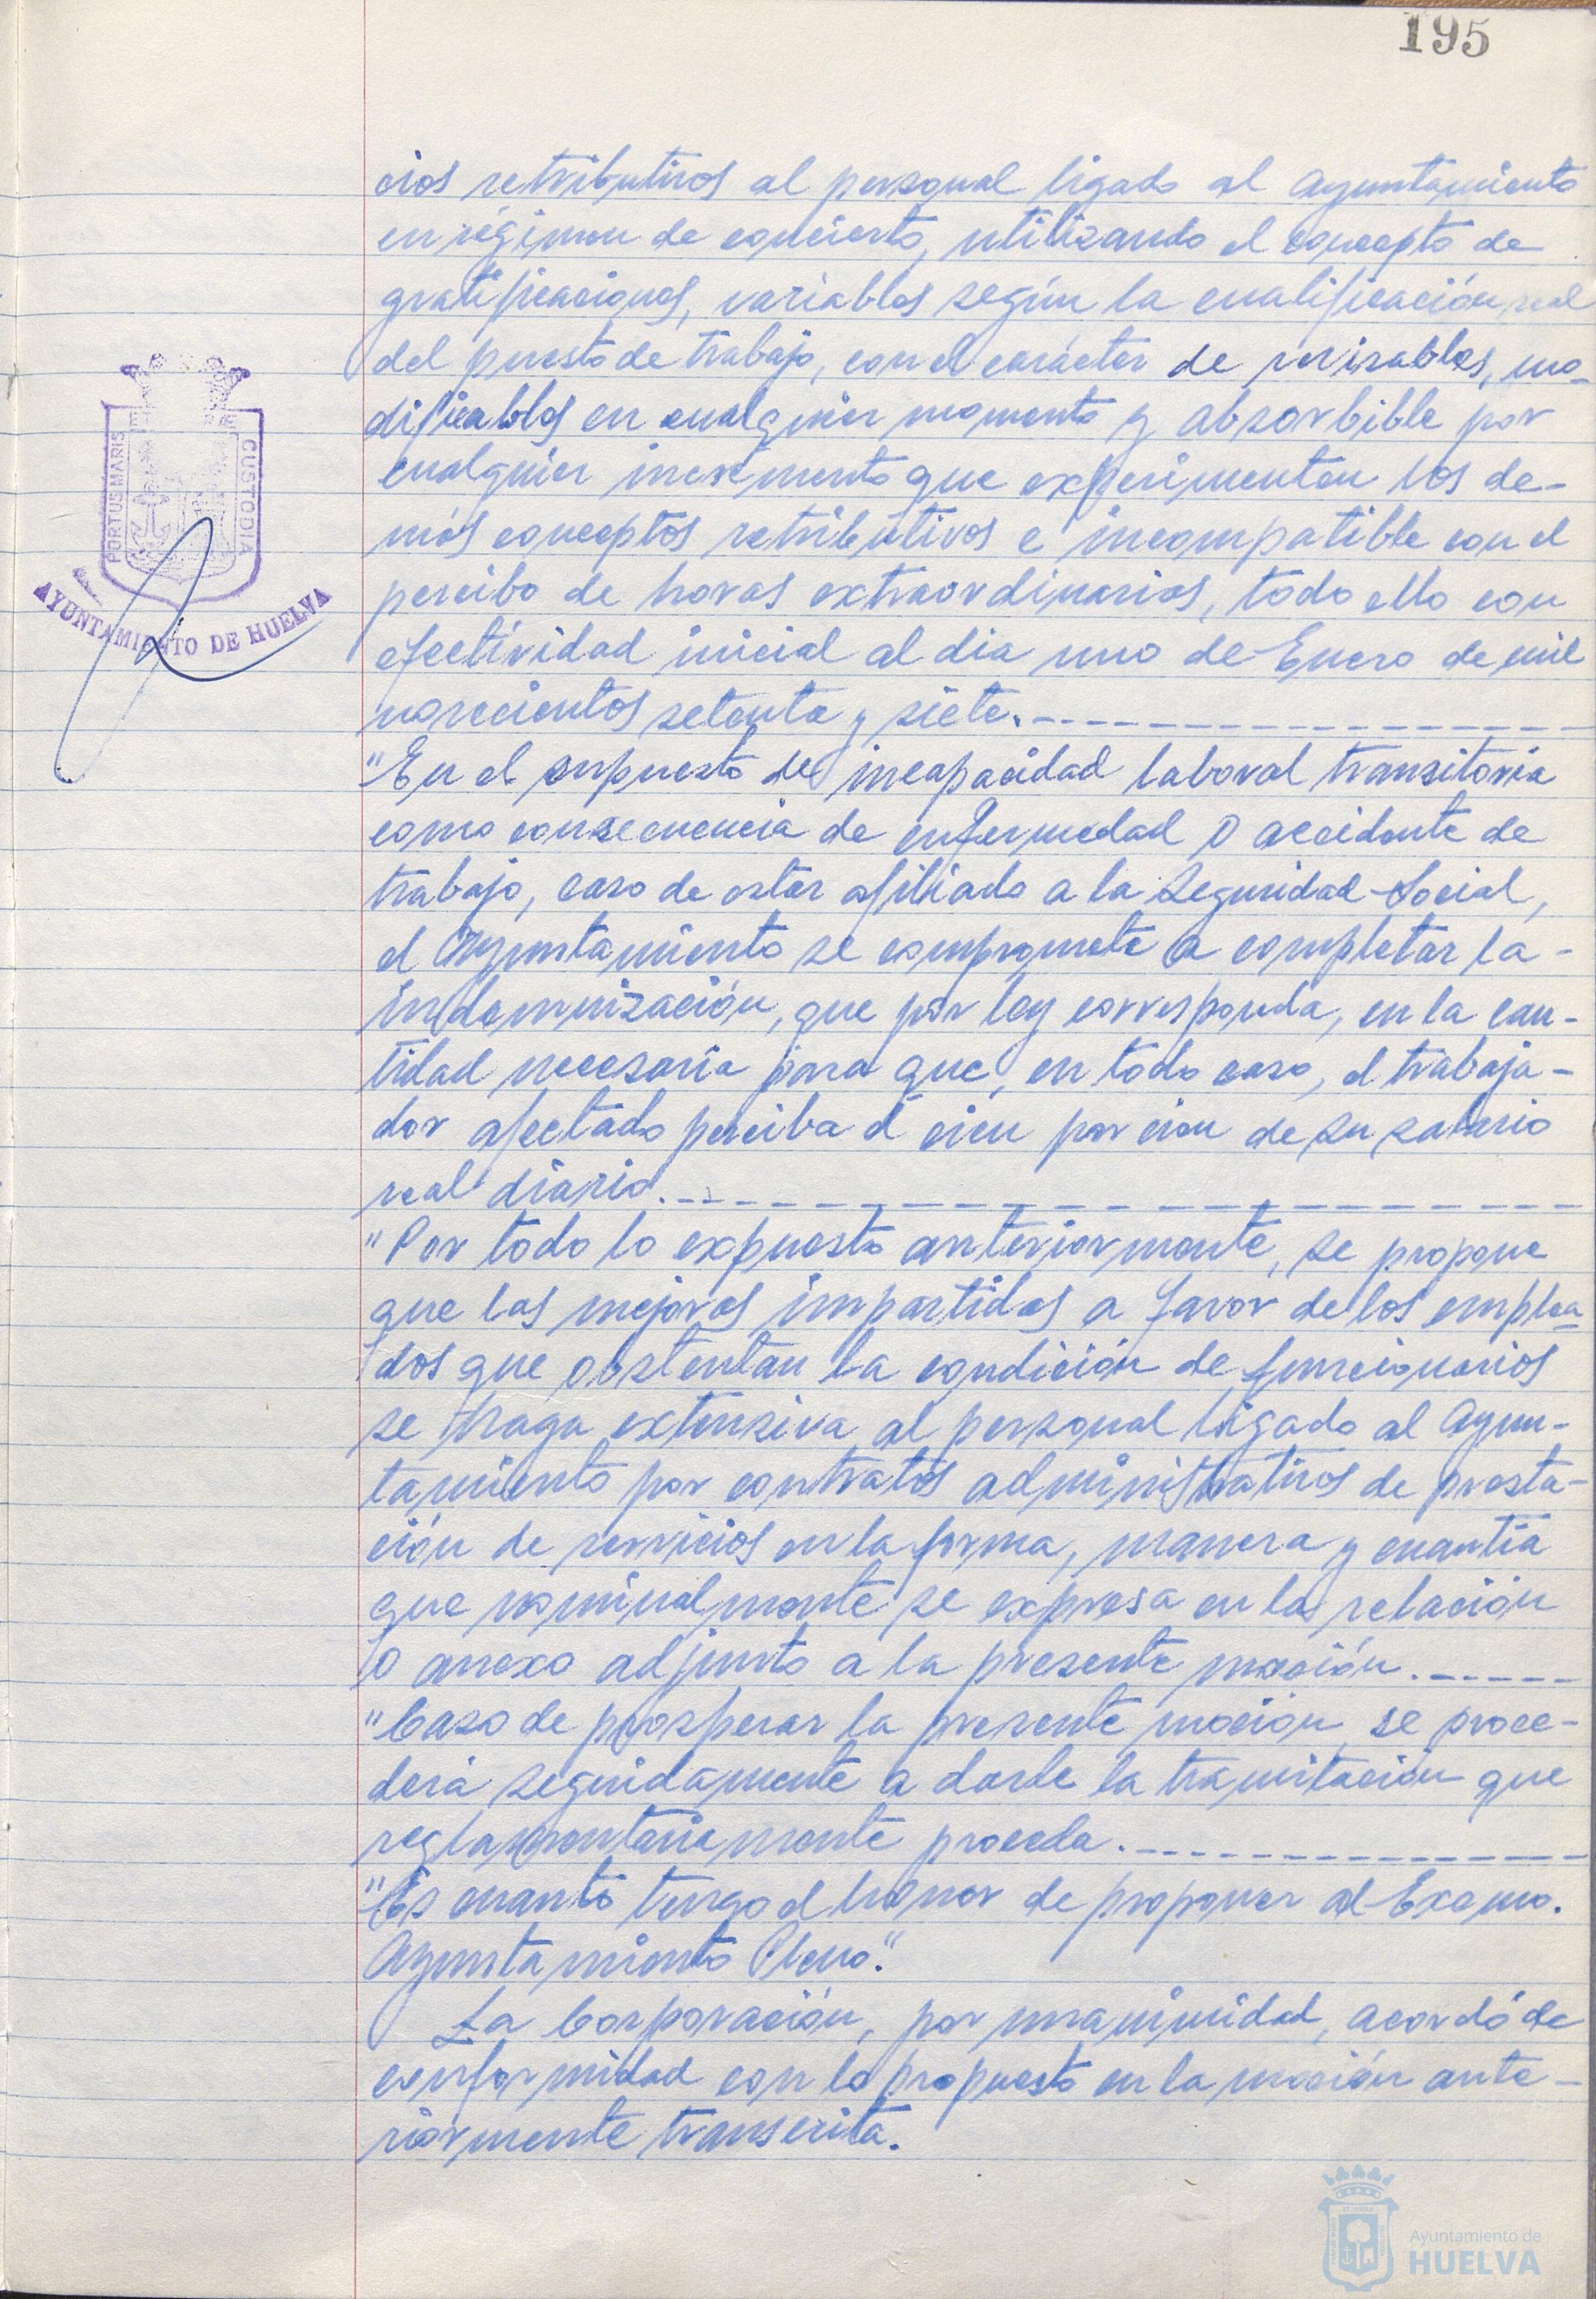 195
cios retributivos al personal ligado al Ayuntamiento
en régimen de concierto, utilizando el concepto de
gratificaciones, variables según la cualificación real
del puesto de trabajo, con el carácter de revisables, mo-
dificables en cualquier momento y absorbible por
cualquier incremento que experimenten los de-
más conceptos retributivos e incompatible con el
percibo de horas extraordinarias, todo ello con
efectividad inicial al dia uno de Enero de mil
novecientos setenta y siete.
"En el supuesto de incapacidad laboral transitoria
como consecuencia de enfermedad o accidente de
trabajo, caso de estar afiliado a la Seguridad Social,
el Ayuntamiento se compromete a completar la-
indemnización, que por ley corresponda, en la can-
tidad necesaria para que, en todo caso, el trabaja-
dor afectado perciba el cien por cien de su salario
real diario.
"Por todo lo expuesto anteriormente, se propone
que las mejoras impartidas a favor de los emplea-
dos que ostentan la condición de funcionarios
se haga extensiva al personal ligado al Ayun-
tamiento por contratos administrativos de presta-
ción de servicios en la forma, manera y cuantía
que nominalmente se expresa en la relación
o anexo adjunto a la presente moción.
"Caso de prosperar la presente moción, se proce-
derá seguidamente a darle la tramitación que
reglamentariamente proceda.
"Es cuanto tengo el honor de proponer al Excmo.
Ayuntamiento Pleno."
La Corporación, por unanimidad, acordó de
conformidad con lo propuesto en la moción ante-
riormente transcrita.
PORTUS MARIS
CUSTODIA
AYUNTAMIENTO DE HUELVA
Ayuntamiento de
HUELVA